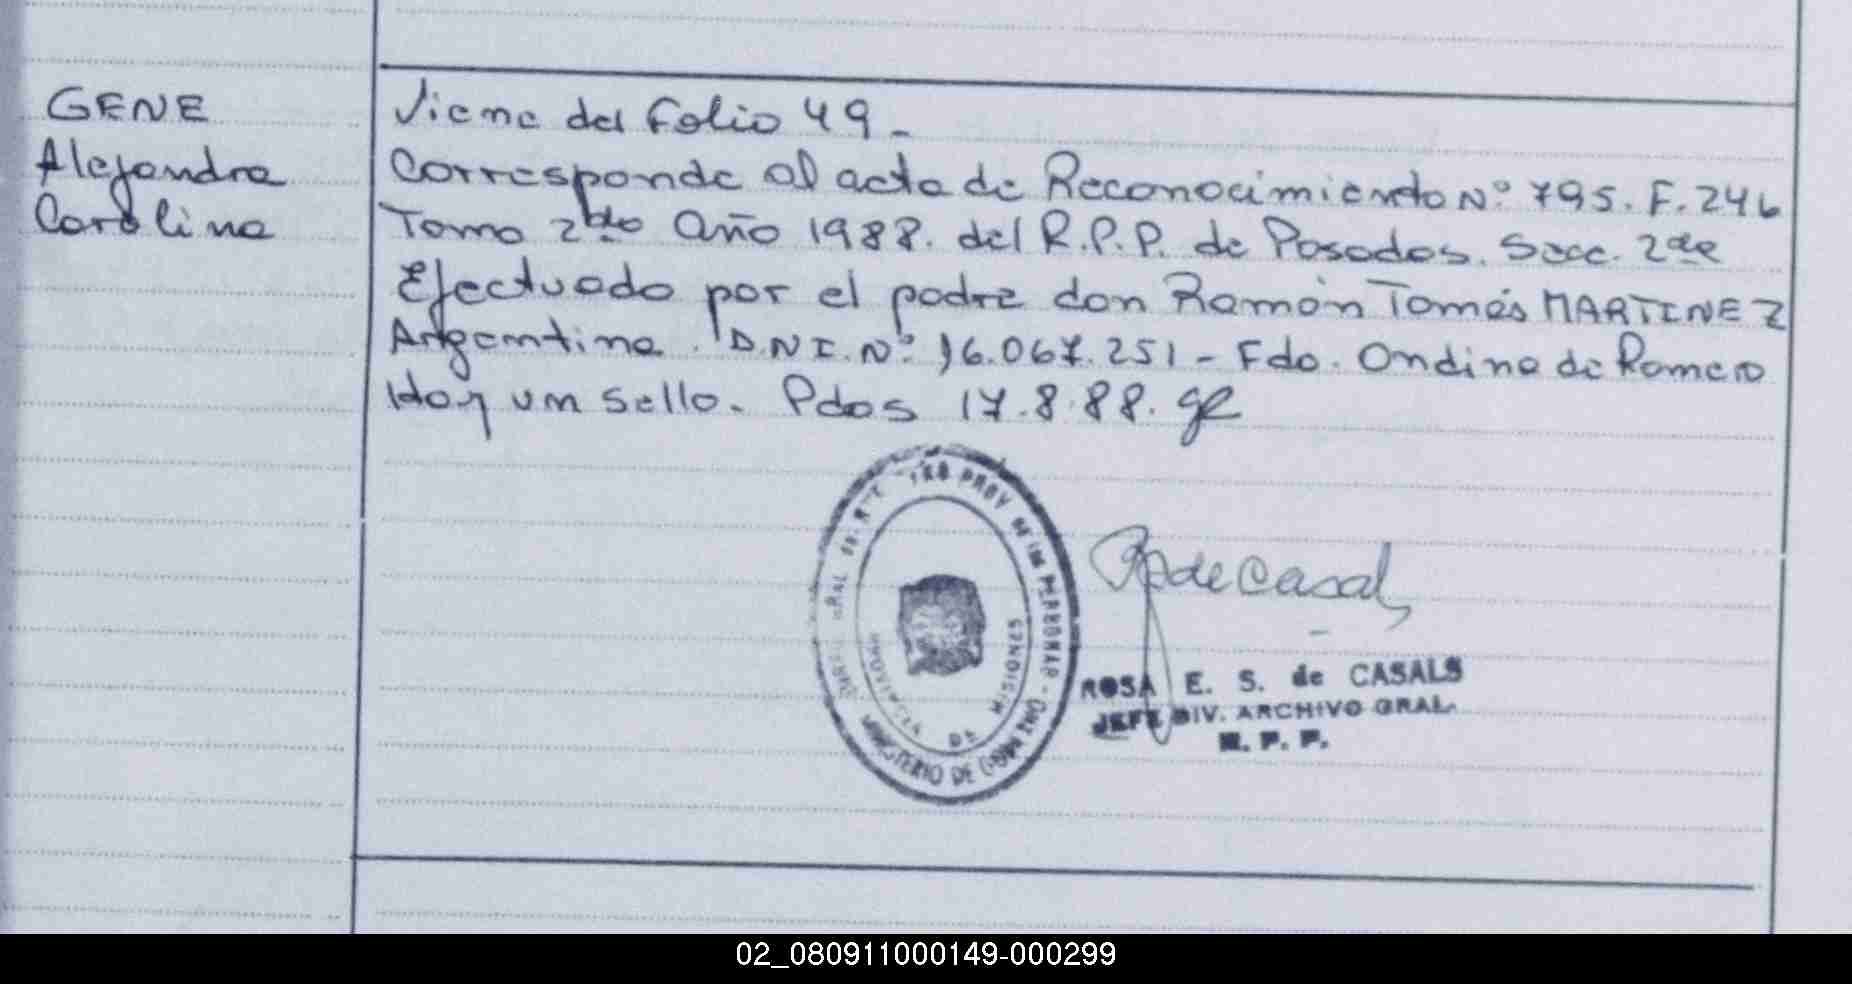 GENE
Alejandra
Carolina
Viene del Folio 49_
Corresponde al acta de Reconocimiento Nº 795. F. 246
Tomo 2do Año 1988. del R.P.P. de Posadas. Secc. 2da
Efectuado por el padre don Ramón Tomás MARTINEZ
Argentino. D.N.I. Nº 16.067.251 - Fdo. Ondina de Romero
Hay un sello. Pdas 17.8.88.
PROV DE LAS PERSONAS
PROVINCIA DE MISIONES
MINISTERIO DE
de Casals
ROSA E. S. de CASALS
JEFE DIV. ARCHIVO GRAL.
R. P. P.
02_080911000149-000299